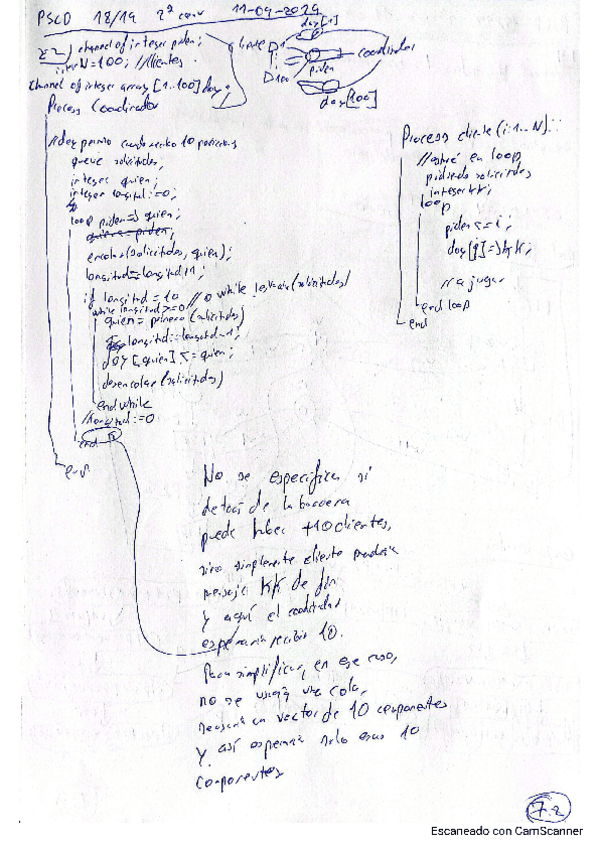 PSCD 18/19 2ª conv 11-09-2024
E2) channel of integer piden;
int N=100; //clientes
channel of integer array [1..100] doy;
Process Coordinador
doy[1]
D1
D100
piden
coordinador
doy[100]
//doy permiso cuando recibo 10 peticiones
queue solicitudes;
integer quien;
integer longitud:=0;
loop
piden => quien;
quien = piden;
encolar(solicitudes, quien);
longitud:=longitud+1;
if longitud = 10
while longitud>=0 // o while (solicitudes)
quien = primero(solicitudes)
longitud:=longitud-1;
doy[quien] <= quien;
desencolar(solicitudes)
end while
//longitud:=0
end if
end
Process cliente(i:1..N)::
//estaré en loop
pidiendo solicitudes
integer kk;
loop
piden <= i;
doy[i] => kk;
//a jugar
end loop
end
No se especifica si
detrás de la barrera
puede haber +10 clientes,
sino simplemente cliente
mensaje kk de fin
y aquí el coordinador
esperaría recibir 10.
Para simplificar, en ese caso,
no se usaría una cola,
un vector de 10 componentes
y así esperar solo esos 10
componentes
7.2
Escaneado con CamScanner